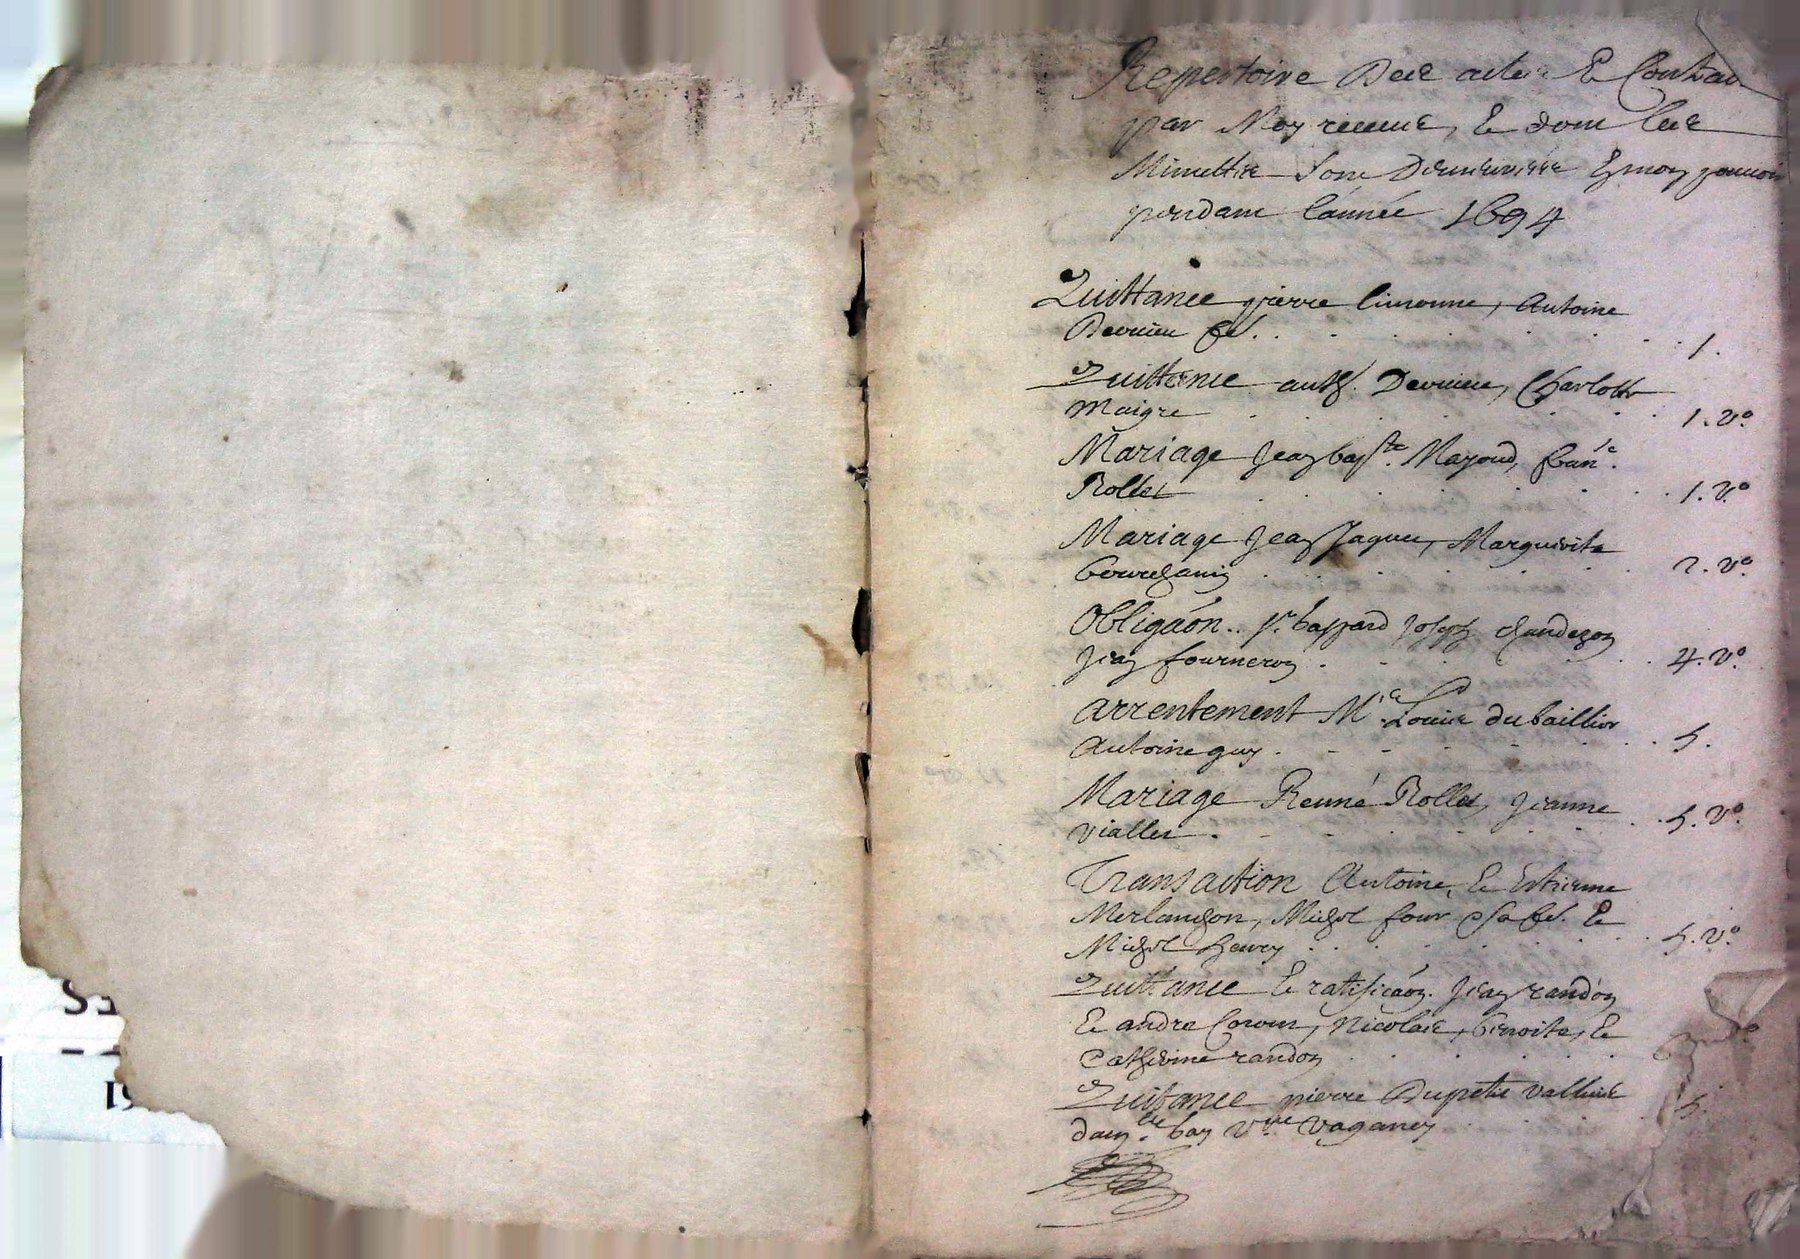 Repertoire Des actes & Contrac
par Moy receus, & dont les
Minuttes sont Demeurées En mon pouvoir
pendant l'année 1694
Quittance pierre limonne, Antoine
Devrieu fe. . 1.
Quittance anth. Devrieu, Charlotte
Maigre 1. vo.
Mariage Jean bapte. Mayoud, franc.
Rollet 1. vo
Mariage Jean Jaques, Marguerite
2. vo.
Obligaon.. Sr. bappard Joseph chandezon
Jean fourneron 4. vo.
Arrentement Mre. Louise du baillier
Antoine guy. 5.
Mariage Renné Rollet, Jeanne
viallet. 5. vo.
Transaction Antoine, & Estienne
Merlanchon, Michel four & sa fe. &
Michel henry 5. vo.
Quittance & ratificaon. Jean randon
& andre Nicolas, benoite, &
Catherine randon
Quittance pierre Dupetit
vve vaganey 5.